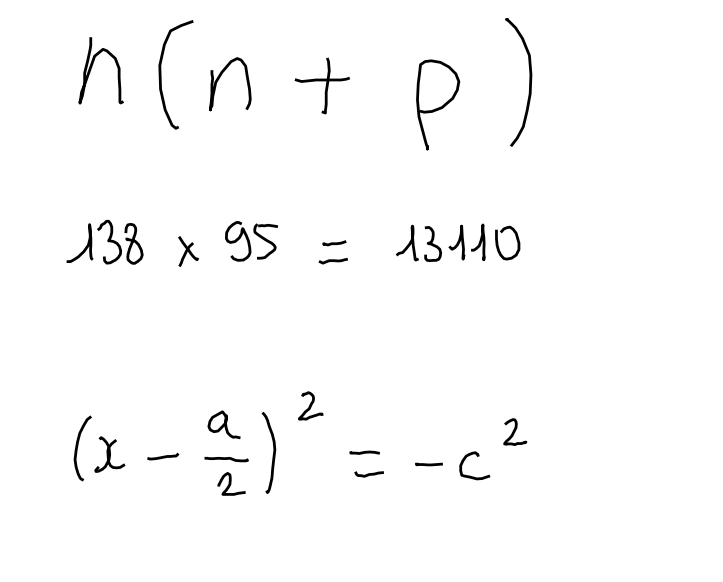 n(n + p)
138 x 95 = 13110
(x - a/2)² = -c²